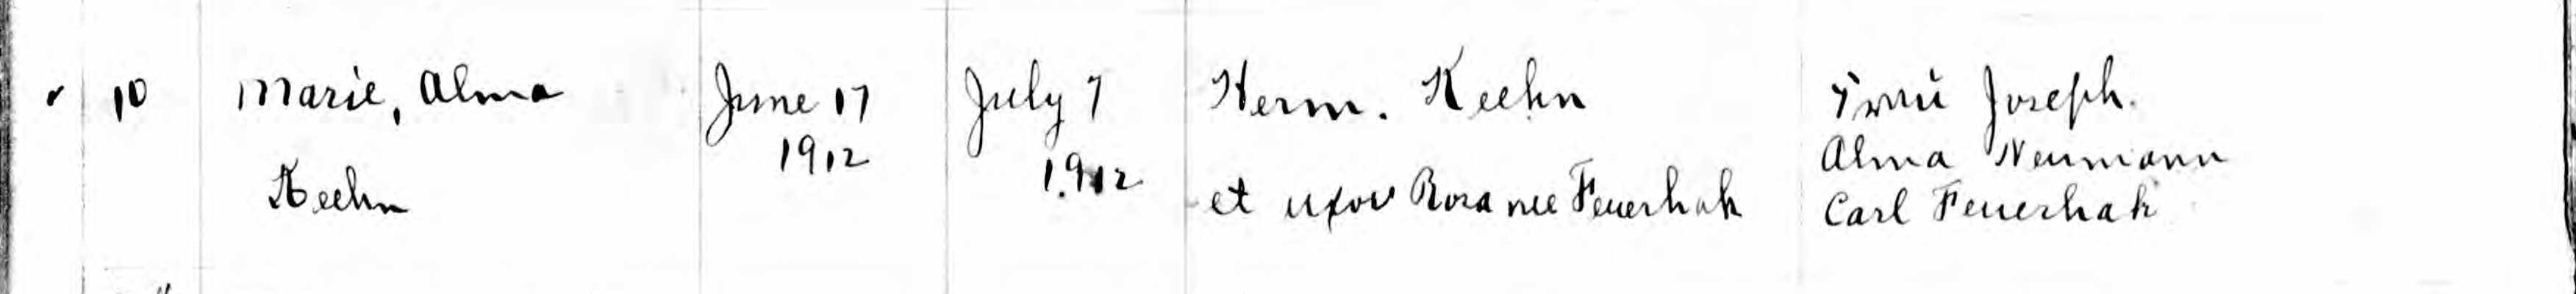 10 Marie, Alma June 17 July 7 Herm. Keehn Joseph.
1912 1912 Alma Neumann
Keehn et uxor Rosa nee Feuerhak Carl Feuerhak